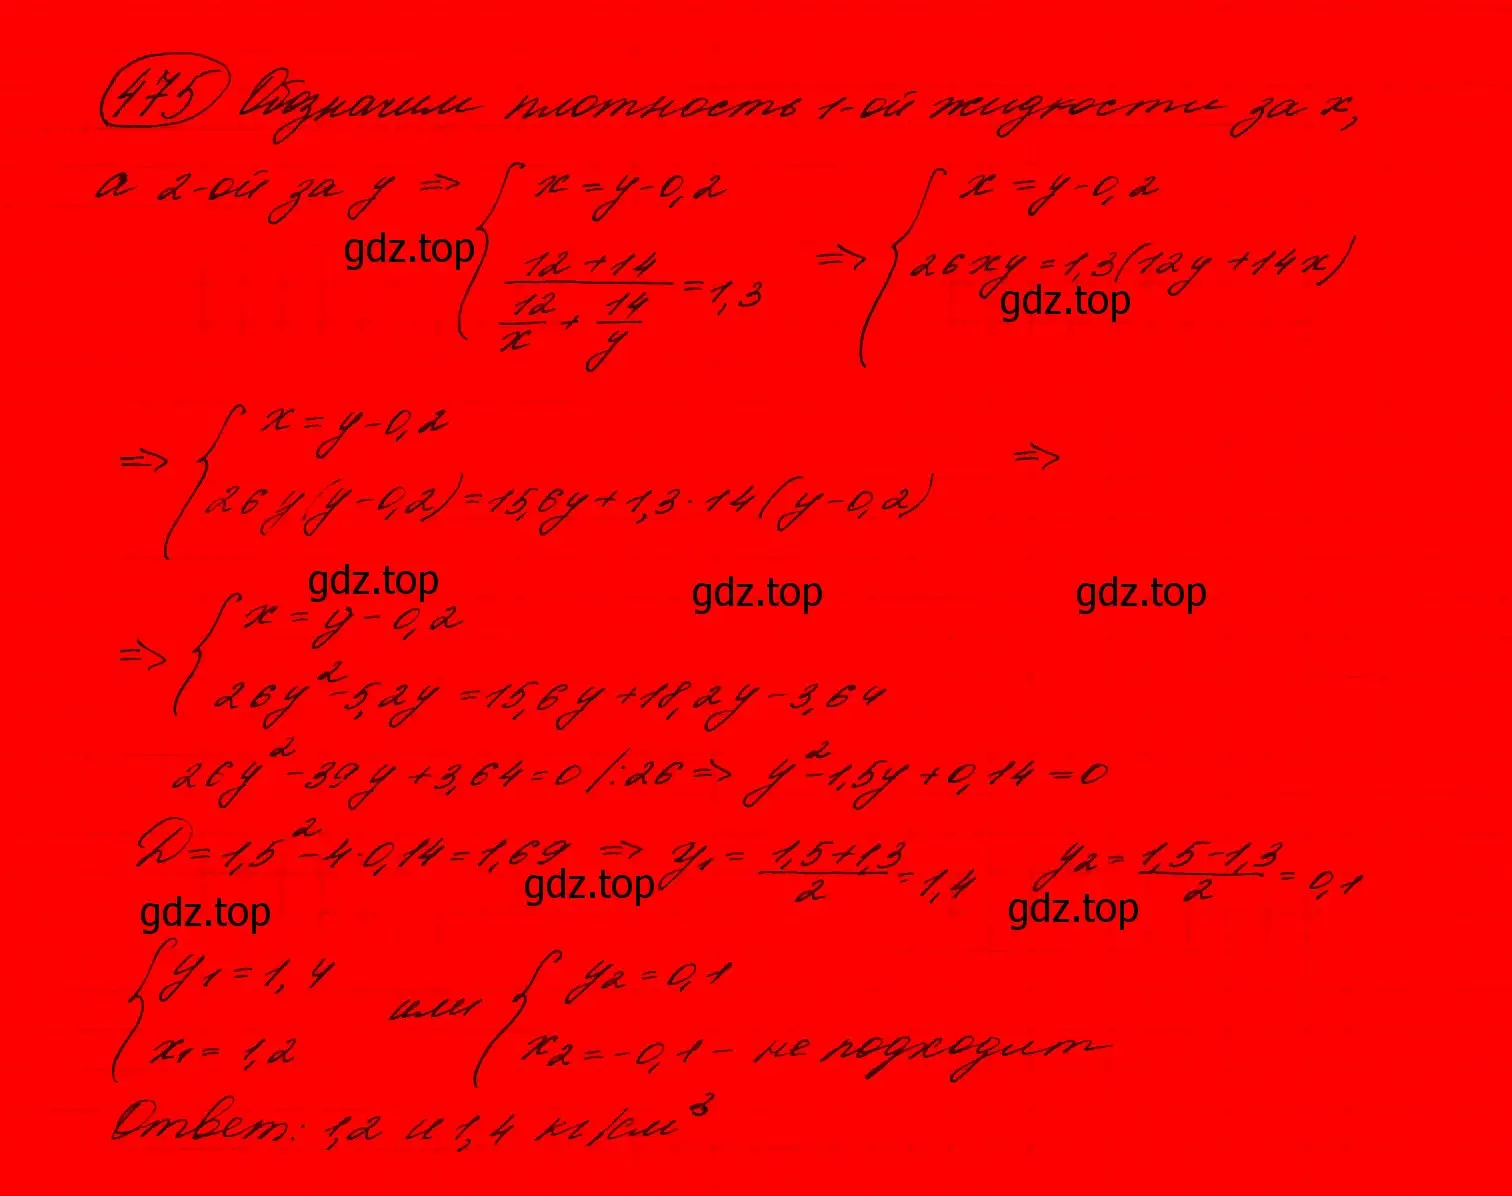 475 Обозначим плотность 1-ой жидкости за x,
а 2-ой за y ⇒ { x = y - 0,2 ; (12 + 14)/(12/x + 14/y) = 1,3 ⇒ { x = y - 0,2 ; 26xy = 1,3(12y + 14x)
gdz.top
gdz.top
⇒ { x = y - 0,2
26y(y - 0,2) = 15,6y + 1,3 · 14(y - 0,2) ⇒
gdz.top gdz.top gdz.top
⇒ { x = y - 0,2
26y² - 5,2y = 15,6y + 18,2y - 3,64
26y² - 39y + 3,64 = 0 /:26 ⇒ y² - 1,5y + 0,14 = 0
D = 1,5² - 4·0,14 = 1,69 ⇒ y₁ = (1,5 + 1,3)/2 = 1,4 y₂ = (1,5 - 1,3)/2 = 0,1
gdz.top gdz.top gdz.top
{ y₁ = 1,4 ; x₁ = 1,2 или { y₂ = 0,1 ; x₂ = -0,1 - не подходит
Ответ: 1,2 и 1,4 кг/см³